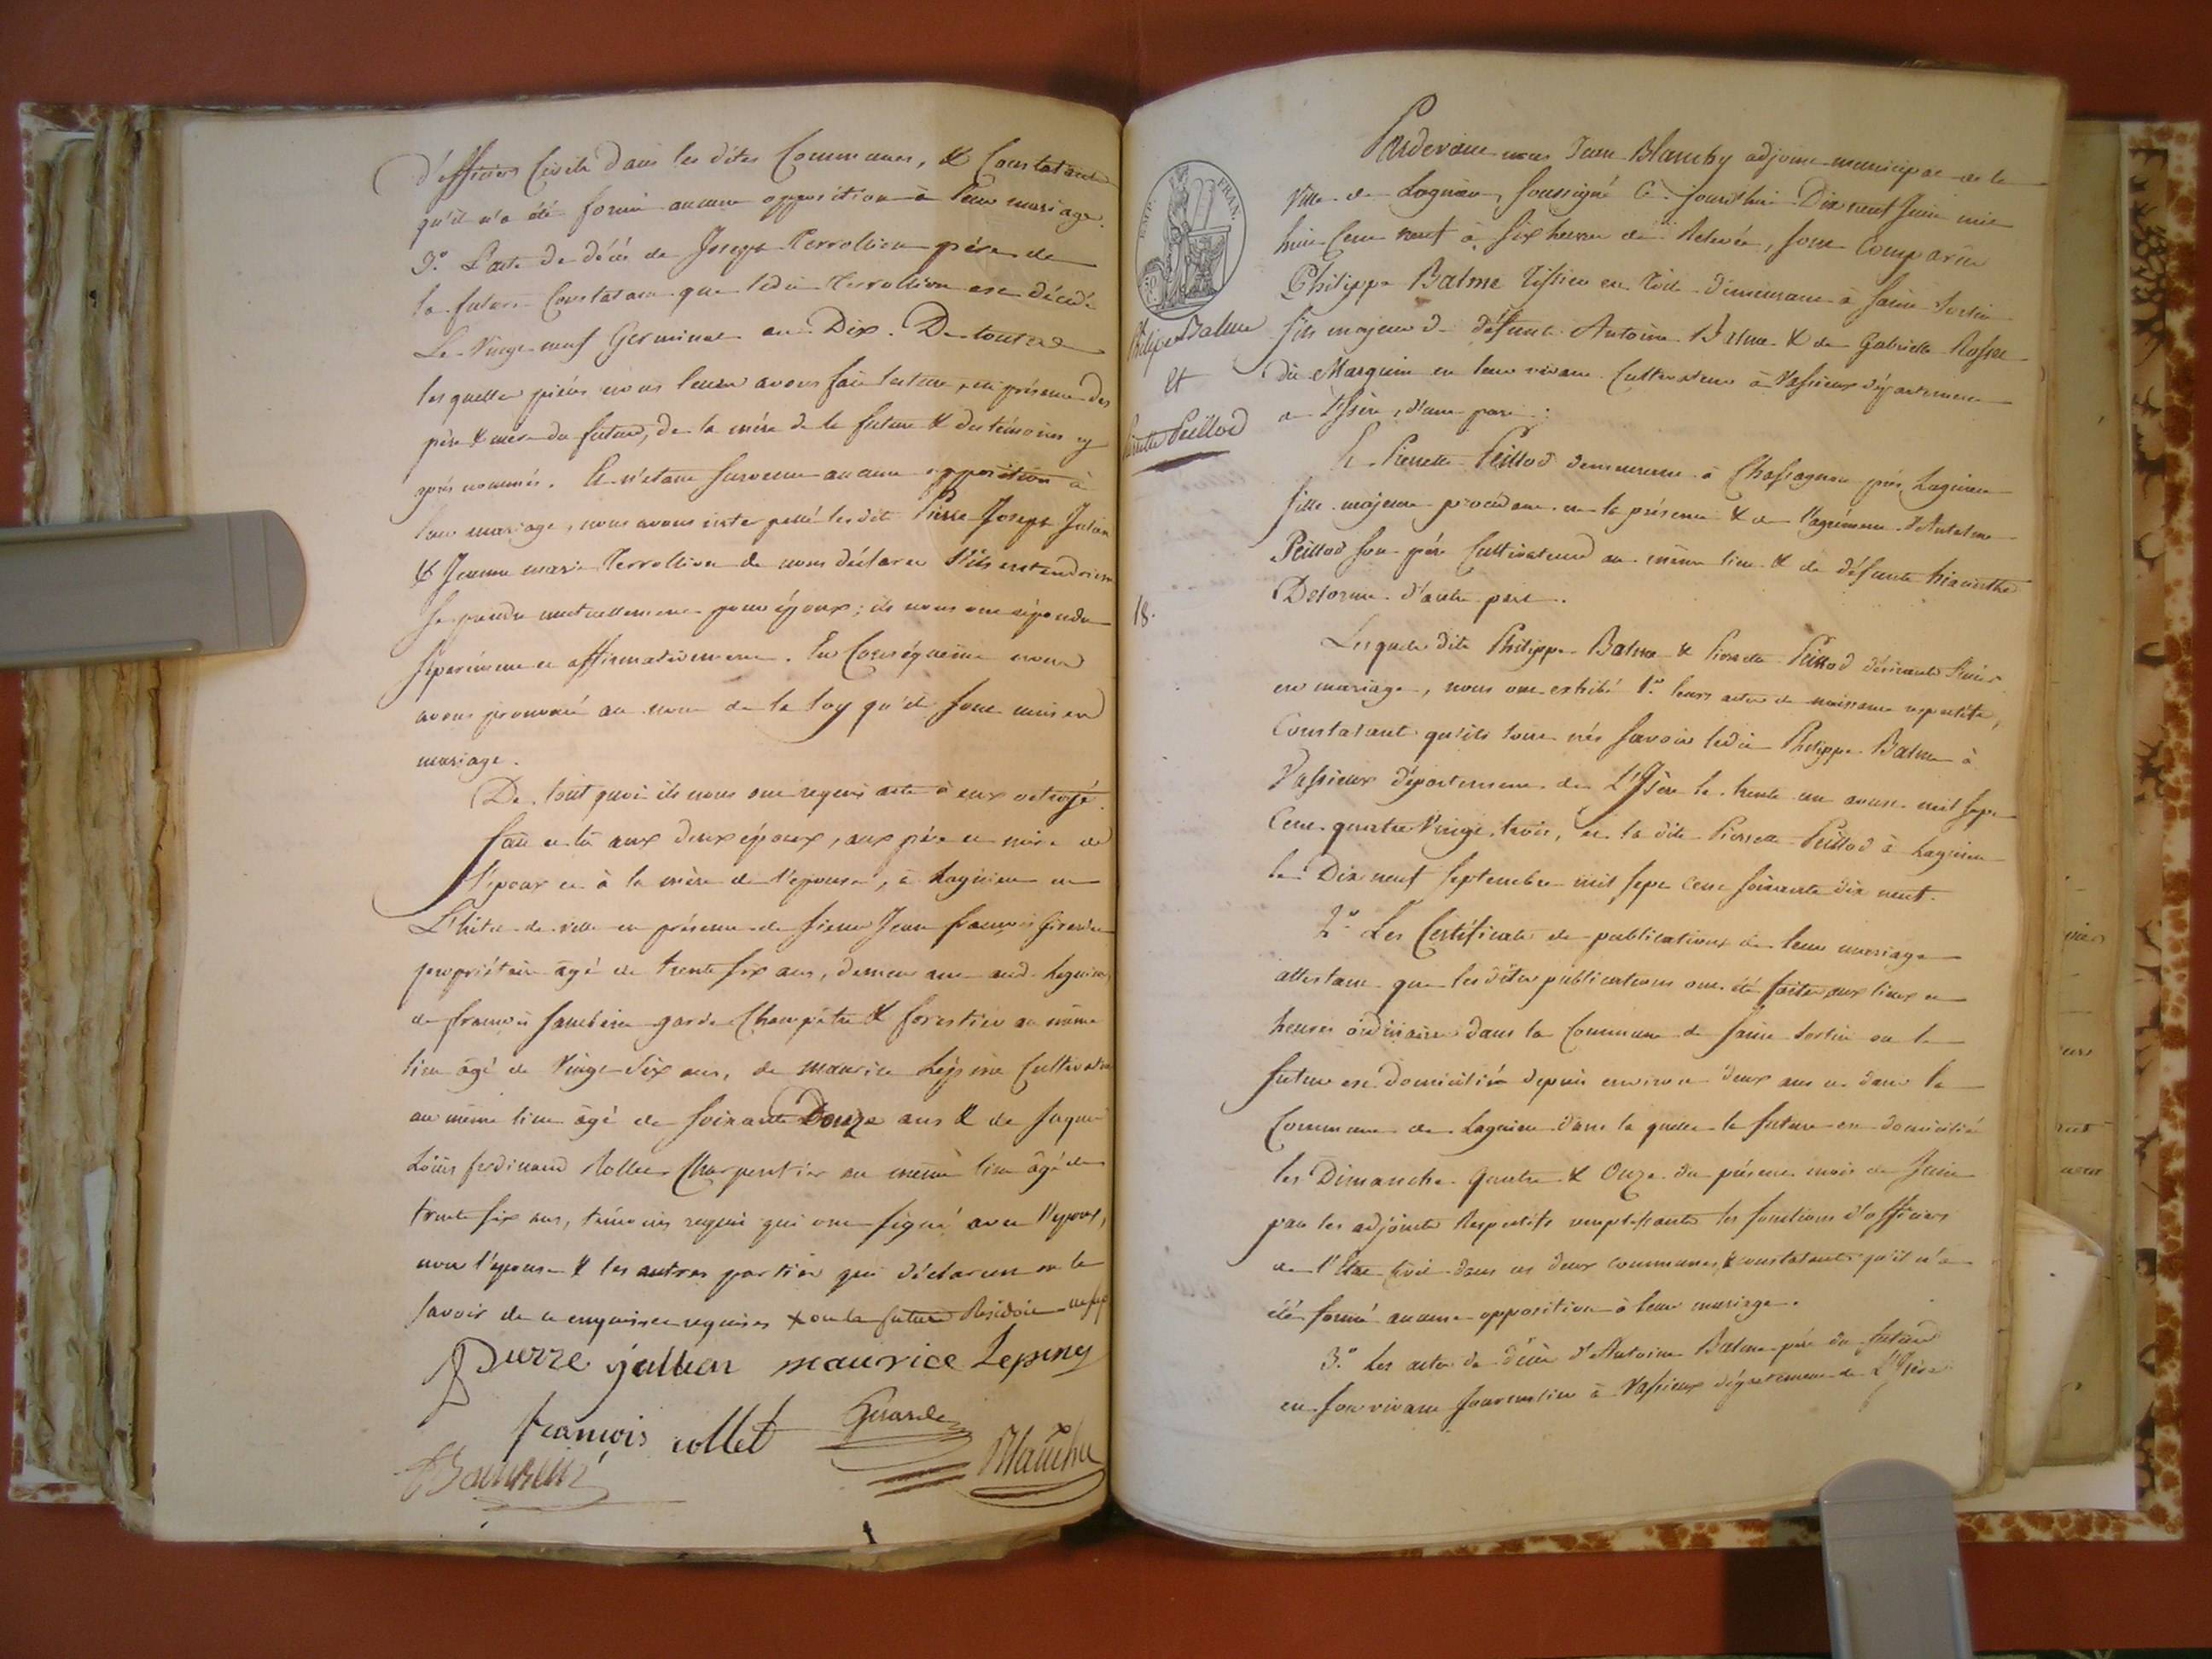 d'officiers Civils dans les dites Communes, & Constatant
qu'il n'a été formé aucune opposition à leur mariage.
3.° L'acte de décés de Joseph Perrollion père de
la future Constatant que ledit Perrollion est décédé
Le Vingt neuf Germinal an Dix. De toutes
lesquelles pièces nous leurs avons fait lecture, en présence des
père & mere du futur, de la mére de la future & des témoins cy
après nommés. Et n'étant survenu aucune opposition à
leur mariage, nous avons interpellé lesdits Pierre Joseph
& Jeanne marie Perrollion de nous déclarer s'ils entendoient
se prendre mutuellement pour époux; ils nous ont répondu
séparément et affirmativement. En Conséquence nous
avons prononcé au nom de la loy qu'ils sont unis en
mariage.
De tout quoi ils nous ont requis acte à eux octroyé.
fait et lû aux deux époux, aux père et mère de
l'époux et à la mère de l'épouse, à Lagnieu en
L'hôtel de ville en présence de sieur Jean françois Girardet
propriétaire âgé de trente six ans, demeurant aud. Lagnieu,
de françois garde Champêtre & forestier au même
lieu âgé de Vingt Six ans, de maurice Lépine Cultivateur
au même lieu âgé de soixante Douze ans & de Jaques
Louis ferdinand Charpentier au même lieu âgé de
trente six ans, témoins requis qui ont signé avec l'époux,
non l'épouse & les autres parties qui déclarent ne le
savoir de ce enquises et requises X ou la future Résidoit
Pierre jullien maurice Lepiney
francois collet Girardet
Blanchy
EMP. FRAN.
Philippe Balme
et
Pierrette Peillod
18.
Pardevant nous Jean Blanchy adjoint municipal de la
Ville de Lagnieu, soussigné Ce jourd'hui Dix neuf Juin mil
huit Cent neuf à six heures de Relevée, sont Comparus
Philippe Balme Tissier en toile demeurant à Saint Sorlin
fils majeur de défunts Antoine Balme & de Gabrielle Rosset
dit Marquin en leur vivant Cultivateurs à Vassieux département
de l'Isère, d'une part:
Et Pierrette Peillod demeurant à Chassagnou près Lagnieu
fille majeure procédant en la présence & de l'agrément d'Antelme
Peillod son père Cultivateur au même lieu & de défunte hiacinthe
Delorme d'autre part.
Lesquels dits Philippe Balme & Pierrette Peillod désirants s'unir
en mariage, nous ont exhibé 1.° leurs actes de naissance respectifs,
Constatant qu'ils sont nés savoir ledit Philippe Balme à
Vassieux département de L'Isère le trente un aoust mil sept
Cent quatre Vingt trois, et la dite Pierrette Peillod à Lagnieu
le Dix neuf Septembre mil sept cent soixante dix neuf.
2.° Les Certificats de publications de leur mariage
attestant que lesdites publications ont été faites aux lieux et
heures ordinaires dans la Commune de saint Sorlin ou le
futur est domicilié depuis environ deux ans et dans la
Commune de Lagnieu dans la quelle la future est domiciliée
les Dimanche quatre & Onze du présent mois de Juin
par les adjoints Respectifs remplissants les fonctions d'officiers
de l'Etat Civil dans ces deux communes, & constatants qu'il n'a
été formé aucune opposition à leur mariage.
3.° Les actes de décès d'Antoine Balme père du futur
en son vivant Journalier à Vassieux département de L'Isère